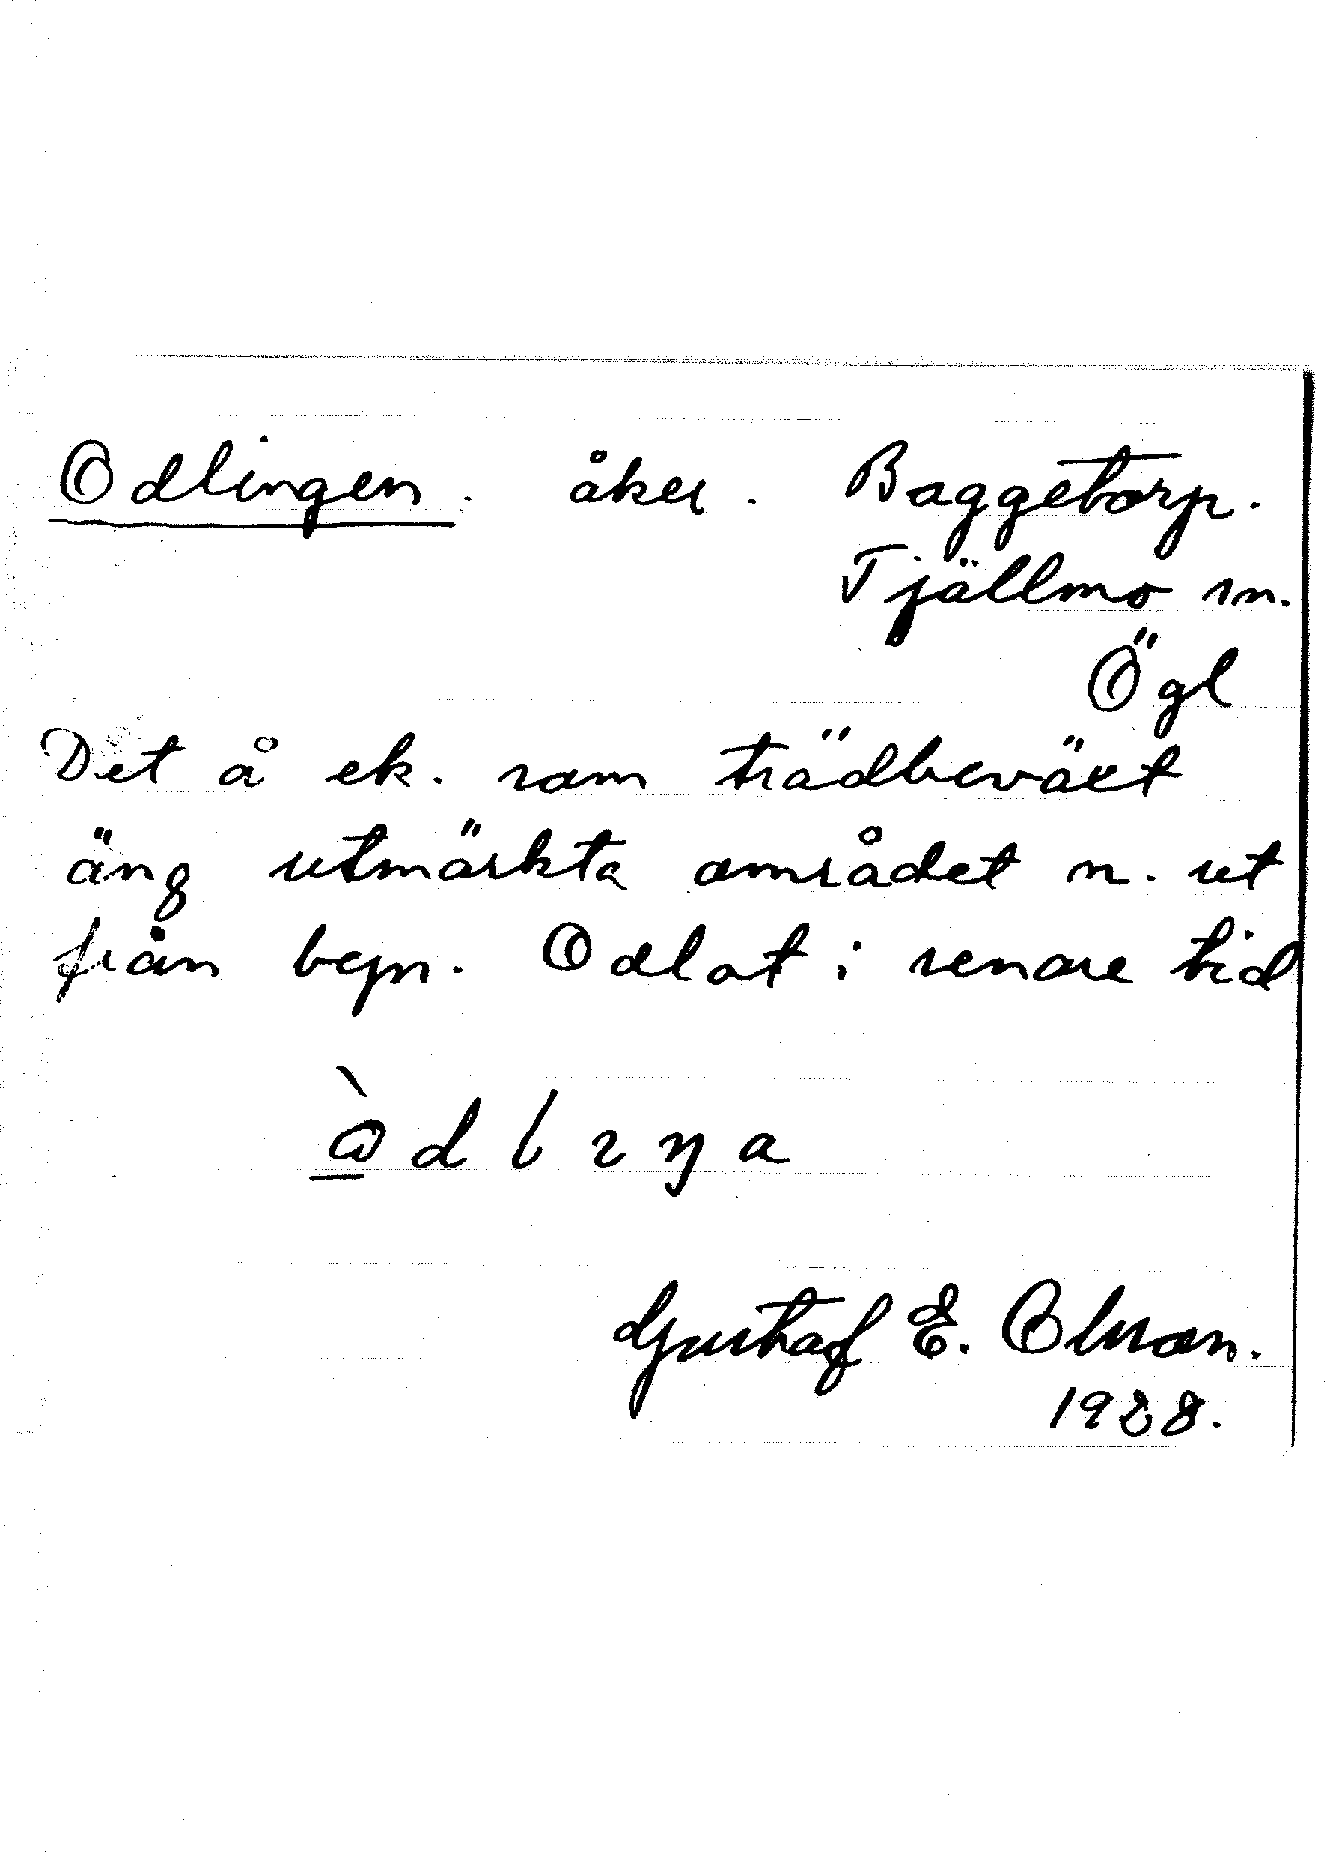 Odlingen. åker. Baggetorp.
Tjällmo sn.
Ögl
Det å ek. som trädbeväxt
äng utmärkta området n. ut
från bgn. Odlat i senare tid
ò̱dlıŋa
Gustaf E. Olsson.
1928.